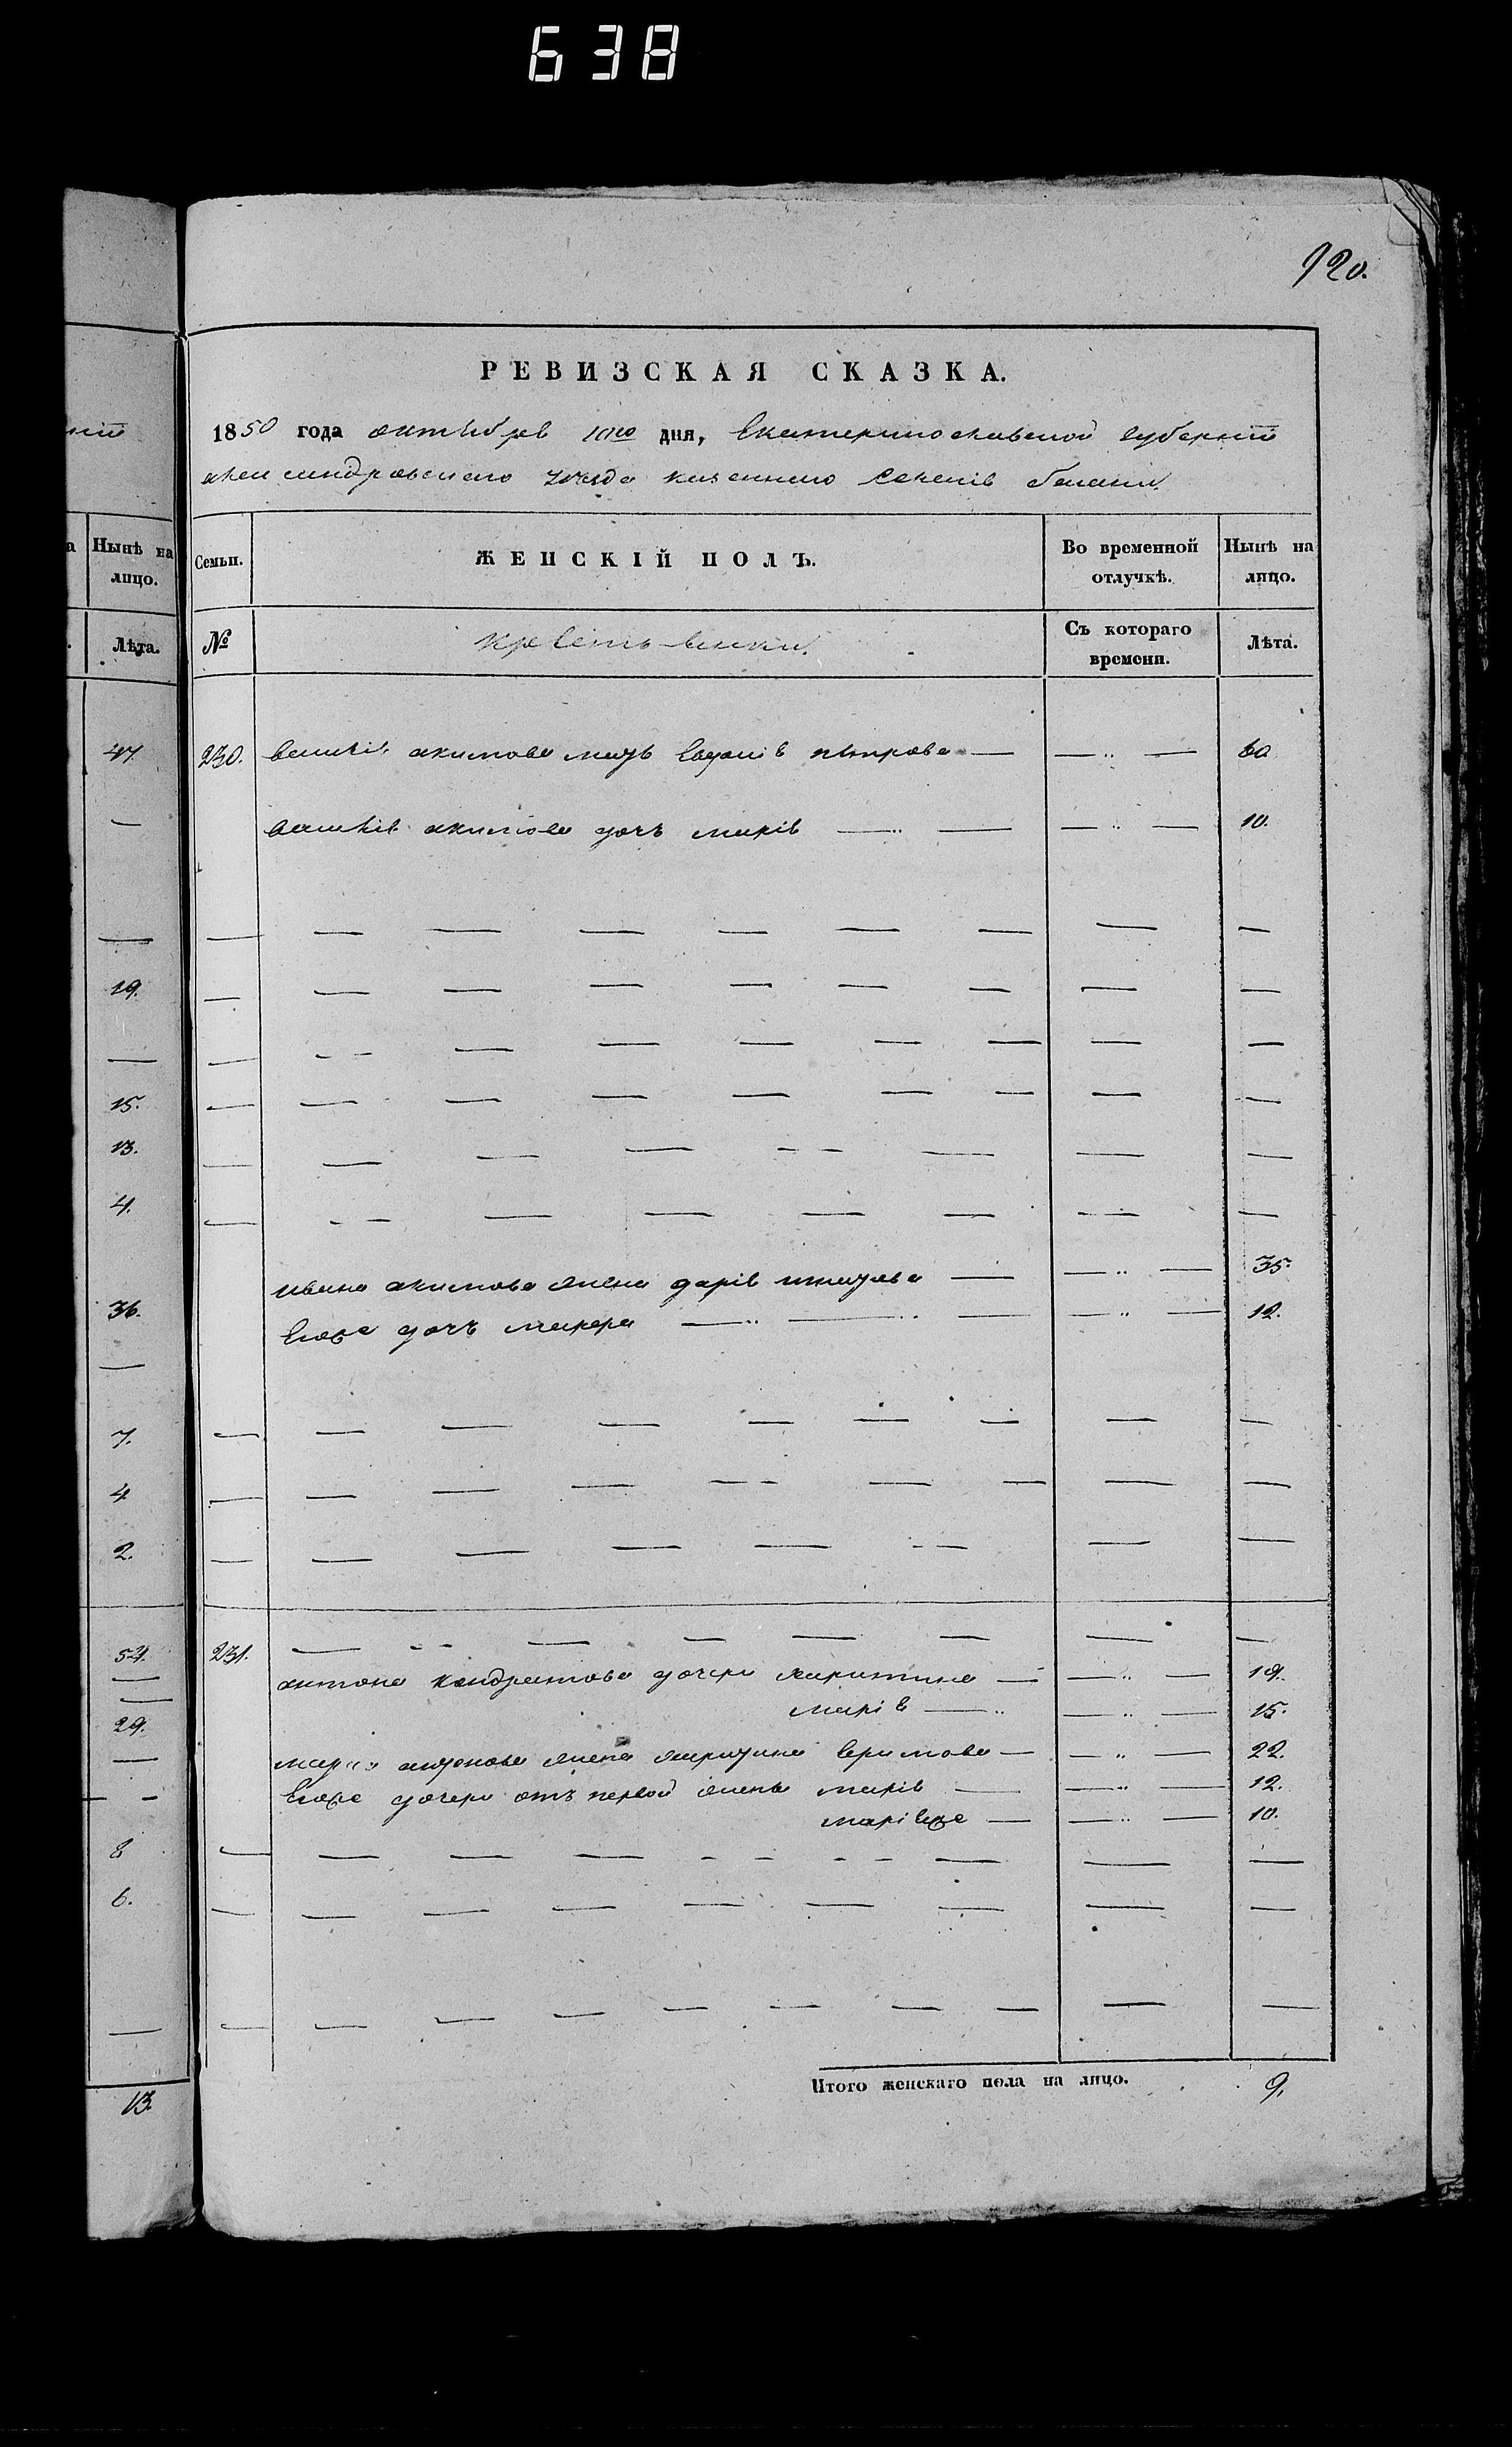 638
920.
РЕВИЗСКАЯ СКАЗКА.
1850 года октября 10го дня, Екатеринославской губерніи
александровскаго уезда казеннаго селенія
Нынѣ на лицо.
Семьи.
ЖЕНСКІЙ ПОЛЪ.
Во временной отлучкѣ.
Нынѣ на лицо.
Лѣта.
№
крестьянки.
Съ котораго времени.
Лѣта.
47.
230. василія акимова мать петрова — — " — 60
— василія акимова дочь марія — " — — " — 10.
19.
15.
13.
4.
ивана акимова жена дарія игнатова — — " — 35.
36.
Егоже дочь — " — " — — " — 12.
7.
4
2.
54.
231.
антона кондратова дочери — — " — 19.
марія — " — " — 15.
29.
антонова жена — — " — 22.
Егоже дочери отъ первой жены марія — — " — 12.
маріяже — — " — 10.
8
6.
13.
Итого женскаго пола на лицо. 9.